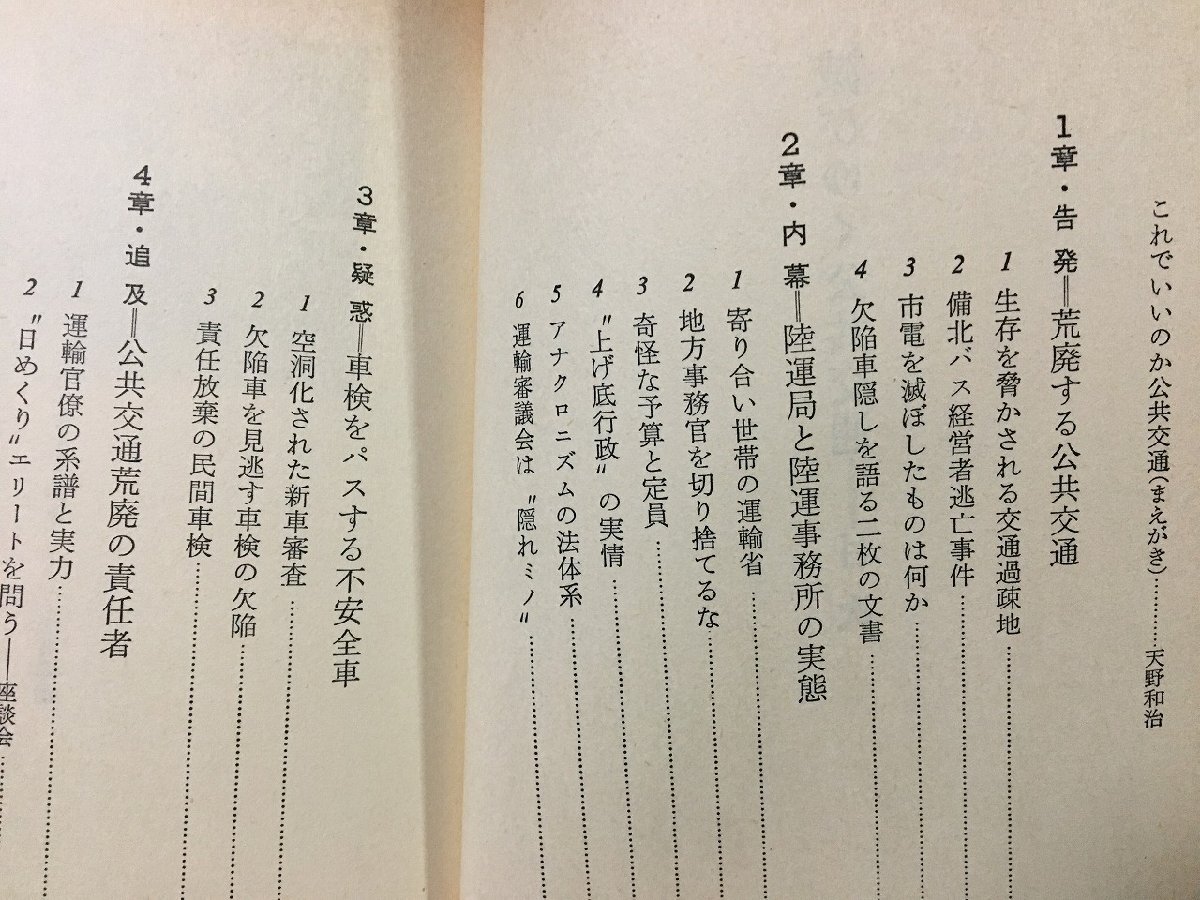 これでいいのか公共交通(まえがき)…………天野和治
1章・告 発＝荒廃する公共交通
1 生存を脅かされる交通過疎地
2 備北バス経営者逃亡事件
3 市電を滅ぼしたものは何か
4 欠陥車隠しを語る二枚の文書
2章・内 幕＝陸運局と陸運事務所の実態
1 寄り合い世帯の運輸省
2 地方事務官を切り捨てるな
3 奇怪な予算と定員
4 〝上げ底行政〟の実情
5 アナクロニズムの法体系
6 運輸審議会は〝隠れミノ〟
3章・疑 惑＝車検をパスする不安全車
1 空洞化された新車審査
2 欠陥車を見逃す車検の欠陥
3 責任放棄の民間車検
4章・追 及＝公共交通荒廃の責任者
1 運輸官僚の系譜と実力
2 〝日めくり〟エリートを問う――座談会